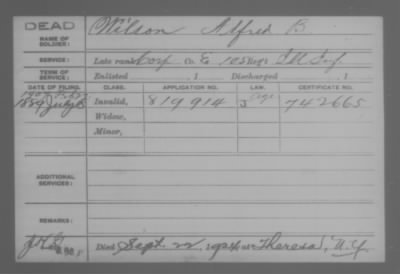 DEAD
NAME OF SOLDIER:
Wilson Alfred B.
SERVICE:
Late rank Corp Co. E 105 Reg't Ill Inf
TERM OF SERVICE:
Enlisted 1 Discharged 1
DATE OF FILING. CLASS. APPLICATION NO. LAW. CERTIFICATE NO.
1889 July Invalid, 819914 Age 742665
Widow,
Minor,
ADDITIONAL SERVICES:
REMARKS:
Died Sept. 22, 1924 at Theresa, N.Y.